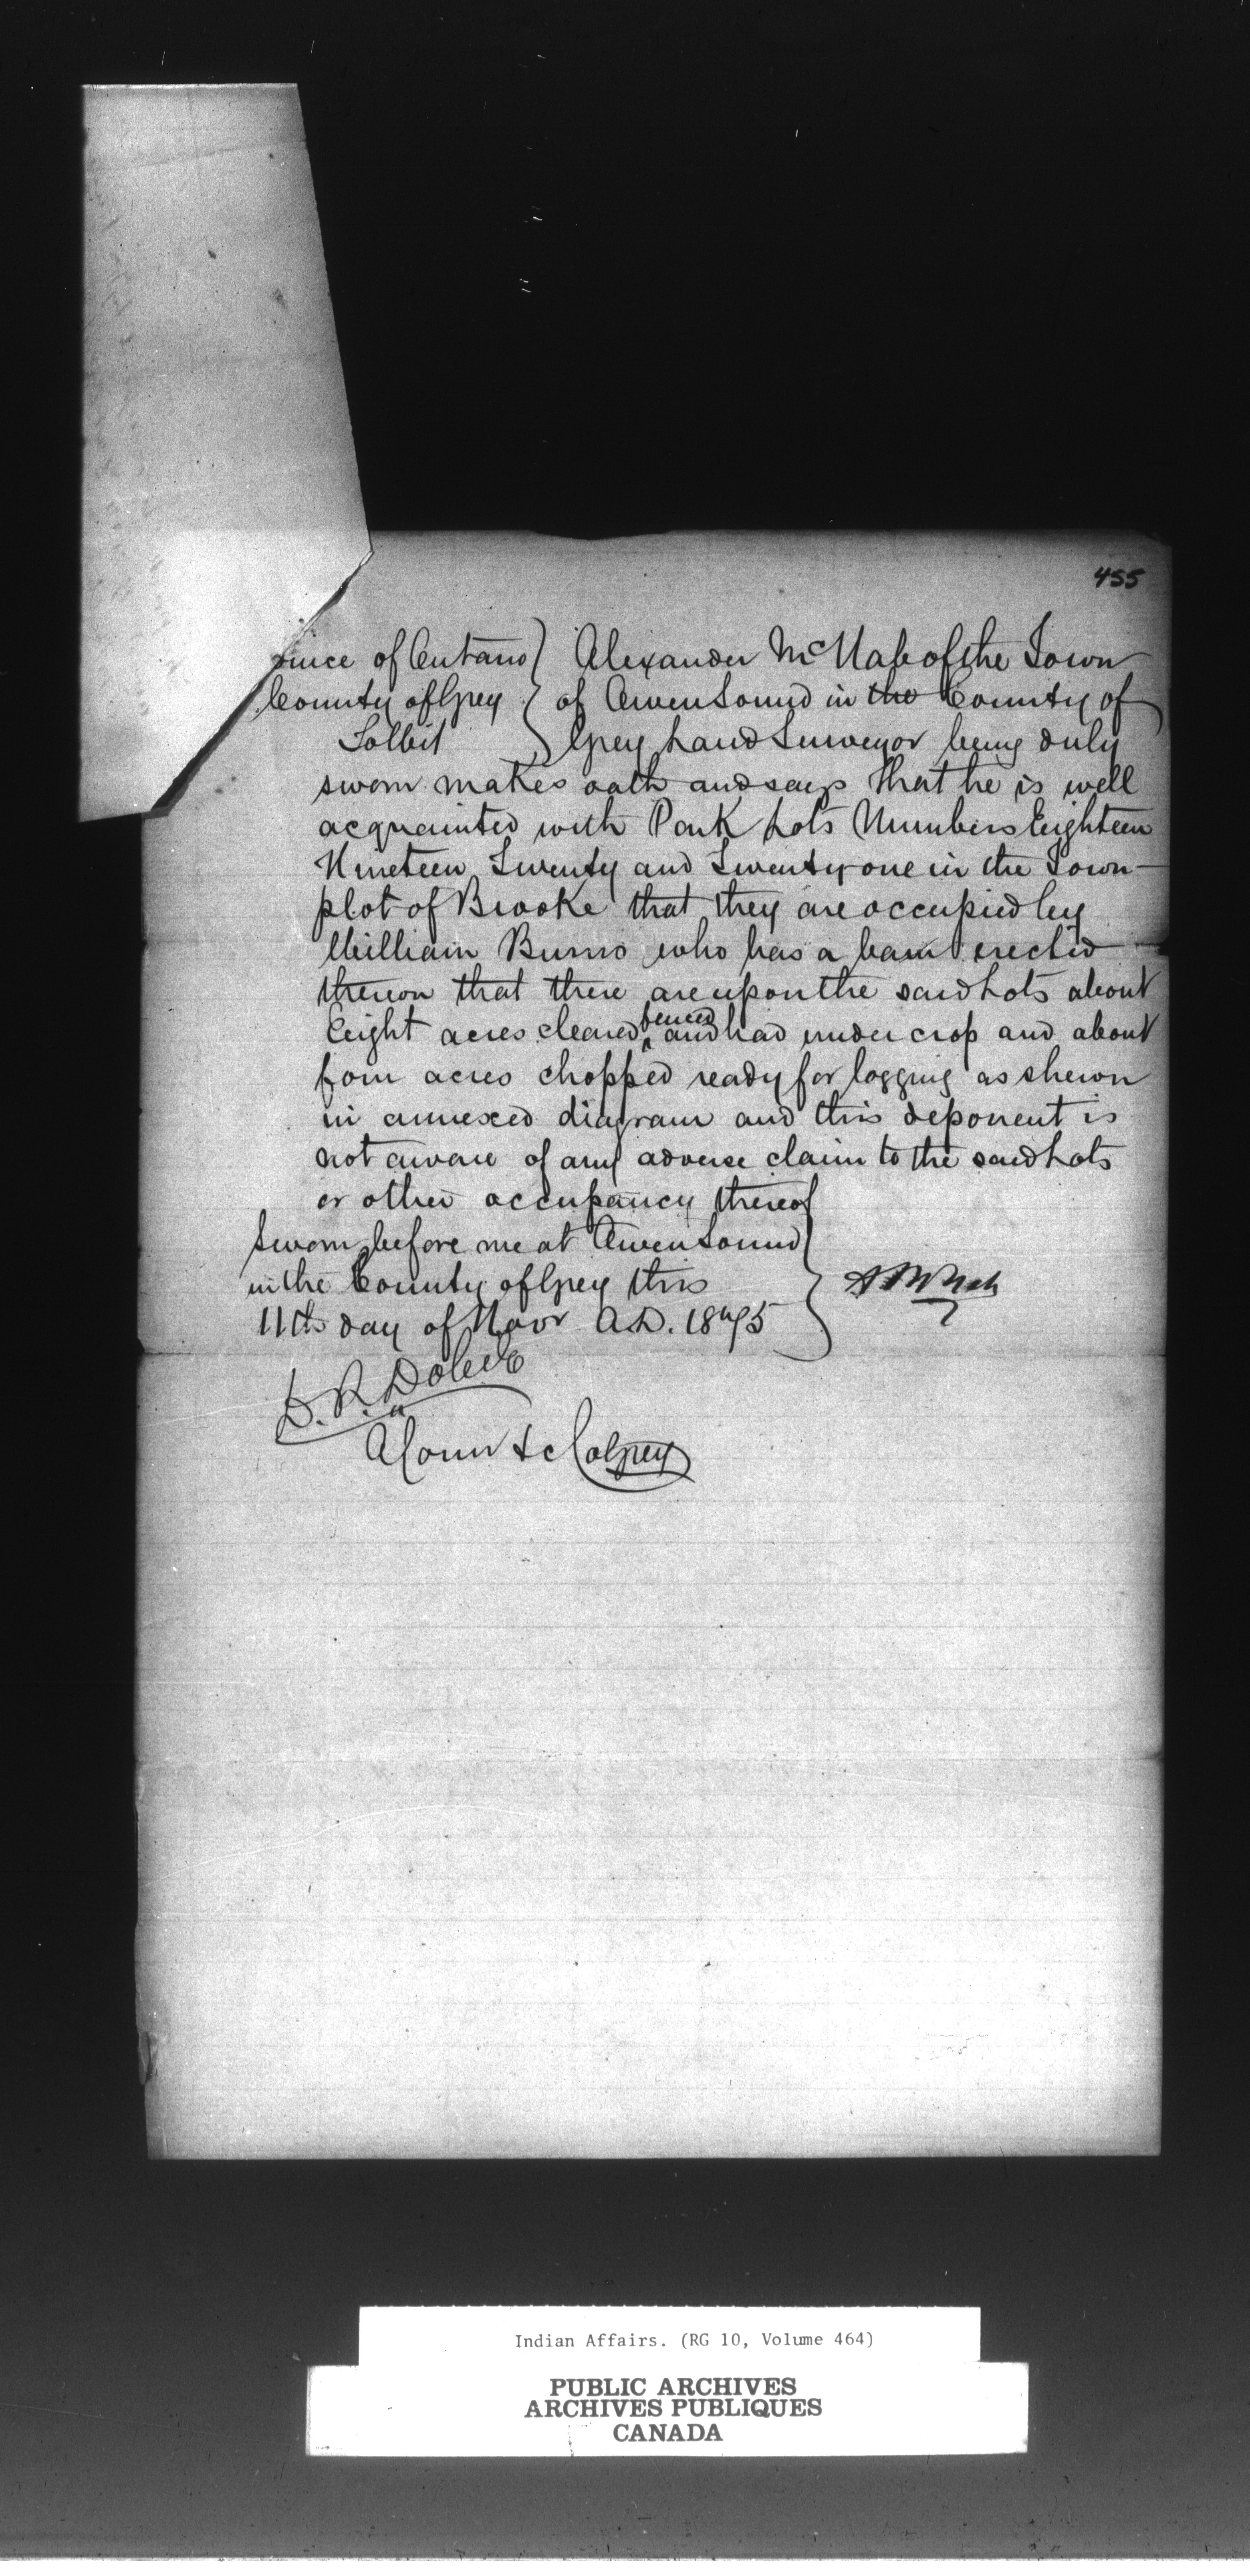 455
vince of Ontario } Alexander McNabb of the Town
County of Grey } of Owen Sound in the County of
To Wit } Grey Land Surveyor being duly
sworn makes oath and says that he is well
acquainted with Park Lots Numbers Eighteen
Nineteen Twenty and Twenty one in the Town
plot of Brooke that they are occupied by
William Burns who has a barn erected
thereon that there are upon the said Lots about
Eight acres cleared fenced and had under crop and about
four acres chopped ready for logging as shewn
in annexed diagram and this deponent is
not aware of any adverse claim to the said Lots
or other occupancy thereof
Sworn before me at Owen Sound
in the County of Grey this
11th day of Novr A.D. 1875
A McNab
D. R. Dobie
A Comr &c Co Grey
Indian Affairs. (RG 10, Volume 464)
PUBLIC ARCHIVES
ARCHIVES PUBLIQUES
CANADA